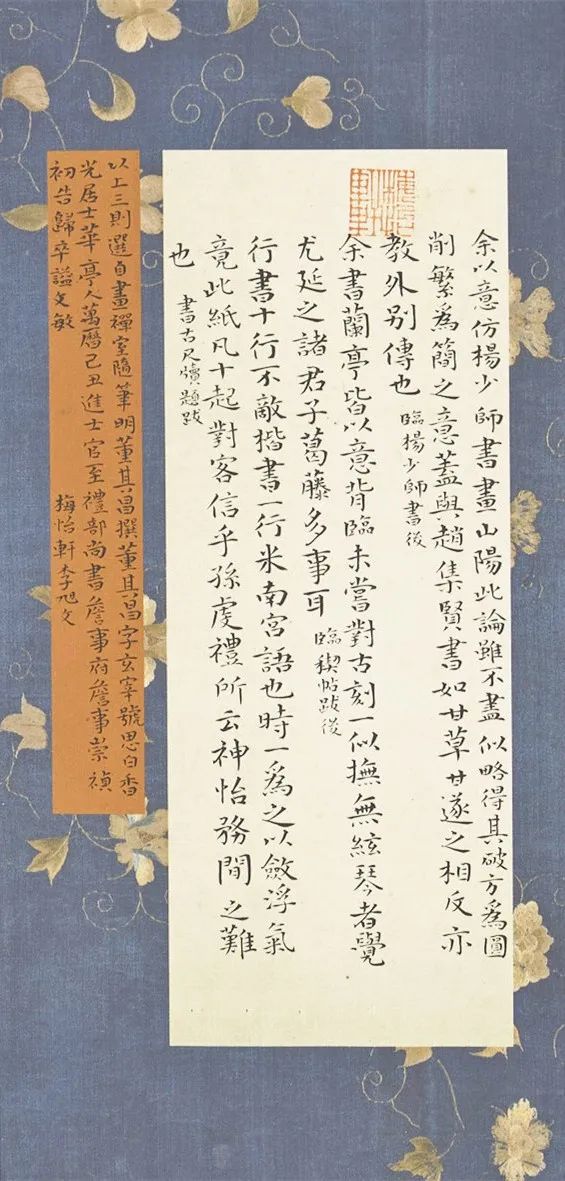 余以意仿楊少師書畫山陽此論雖不盡似略得其破方爲圓
削繁爲簡之意蓋與趙集賢書如甘草甘遂之相反亦
教外別傳也 臨楊少師書後
余書蘭亭皆以意背臨未嘗對古刻一似撫無絃琴者覺
尤延之諸君子葛藤多事耳 臨禊帖跋後
行書十行不敵揩書一行米南宮語也時一爲之以斂浮氣
竟此紙凡十起對客信乎孫虔禮所云神怡務間之難
也 書古尺牘題跋
以上三則選自畫禪室隨筆明董其昌撰董其昌字玄宰號思白香
光居士華亭人萬曆己丑進士官至禮部尚書詹事府詹事崇禎
初告歸卒謚文敏 梅怡軒李旭文